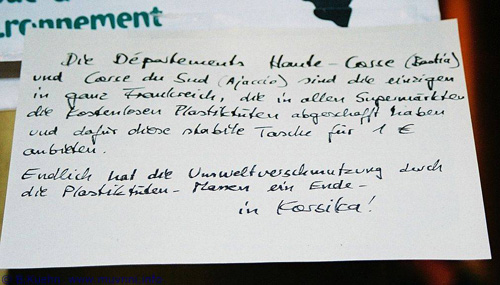 ronnement
Die Départements Haute-Corse (Bastia)
und Corse du Sud (Ajaccio) sind die einzigen
in ganz Frankreich, die in allen Supermärkten
die kostenlosen Plastiktüten abgeschafft haben
und dafür diese stabile Tasche für 1 €
anbieten.
Endlich hat die Umweltverschmutzung durch
die Plastiktüten-Massen ein Ende -
in Korsika!